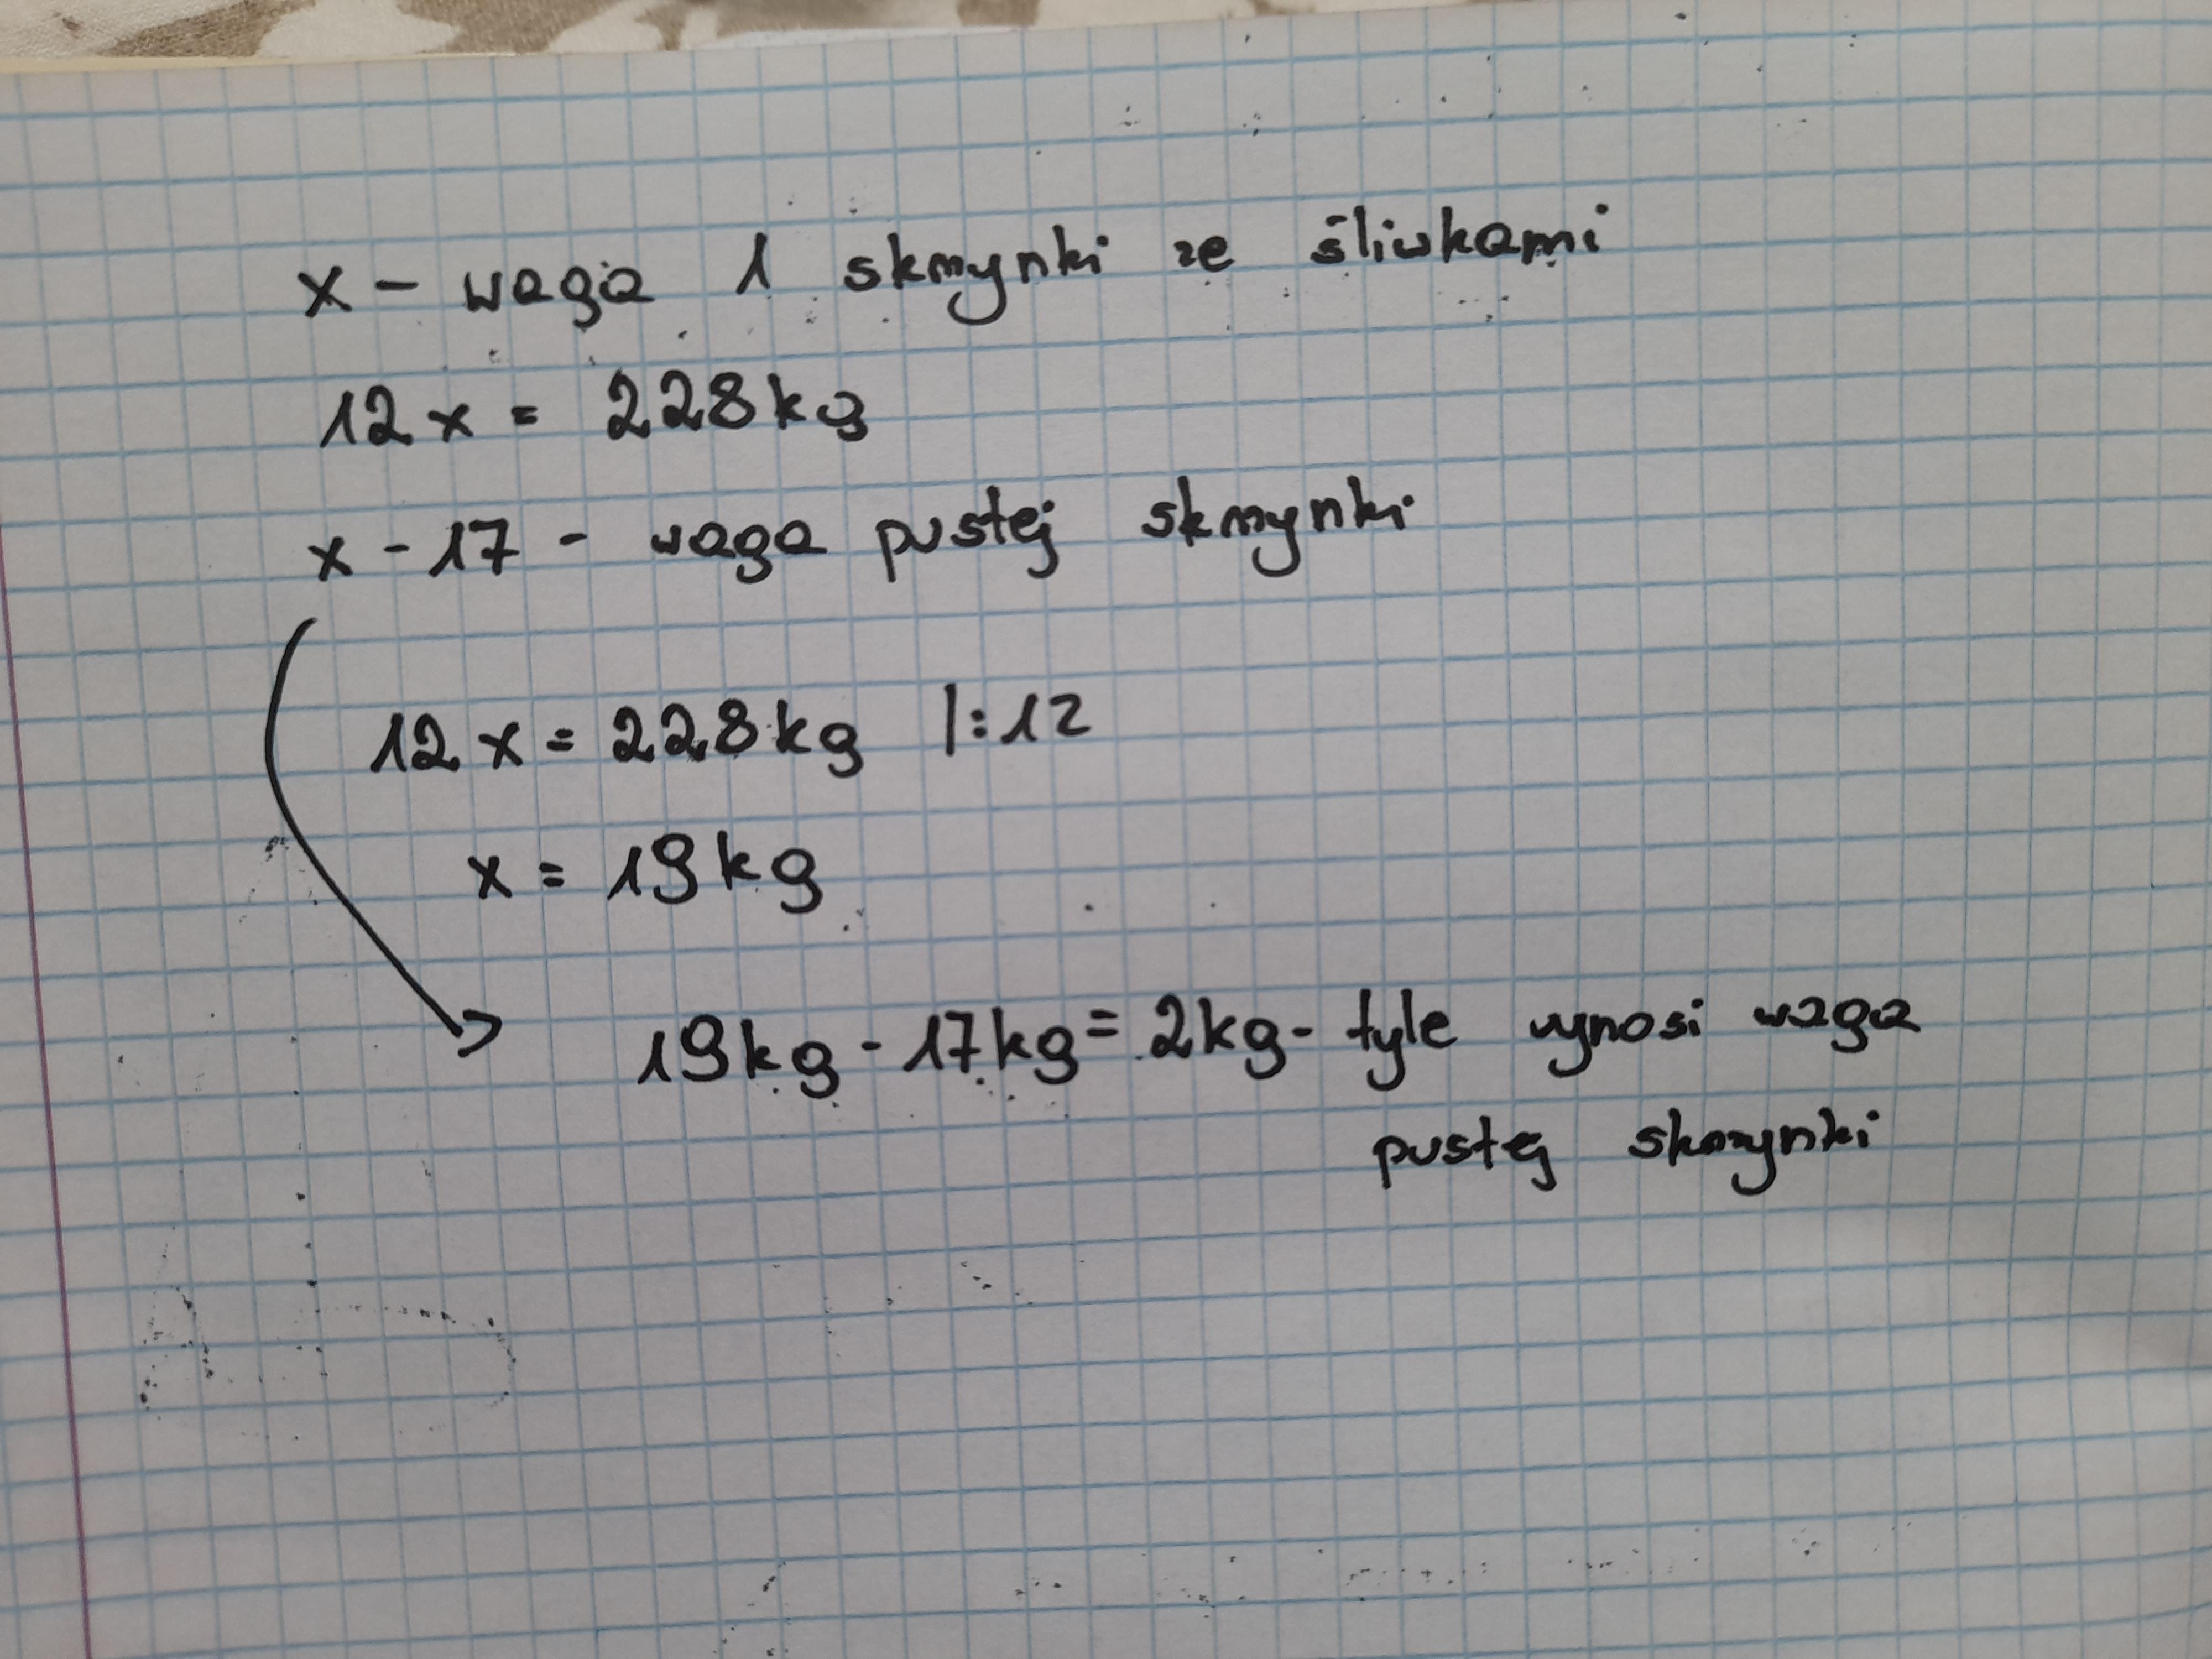 x - waga 1 skrzynki ze śliwkami
12x = 228kg
x - 17 - waga pustej skrzynki
12x = 228kg |:12
x = 19kg
19kg - 17kg = 2kg - tyle wynosi waga
pustej skrzynki